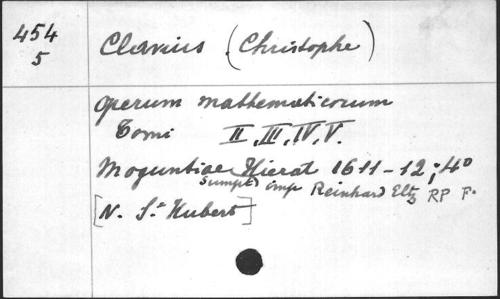 454
5
Clavius (Christophe)
Operum mathematicorum
Tomi II, III, IV, V.
Moguntiae Hierat 1611-12; 4°
Sumpt. imp Reinhard Eltz RP F.
[N. St Hubert]